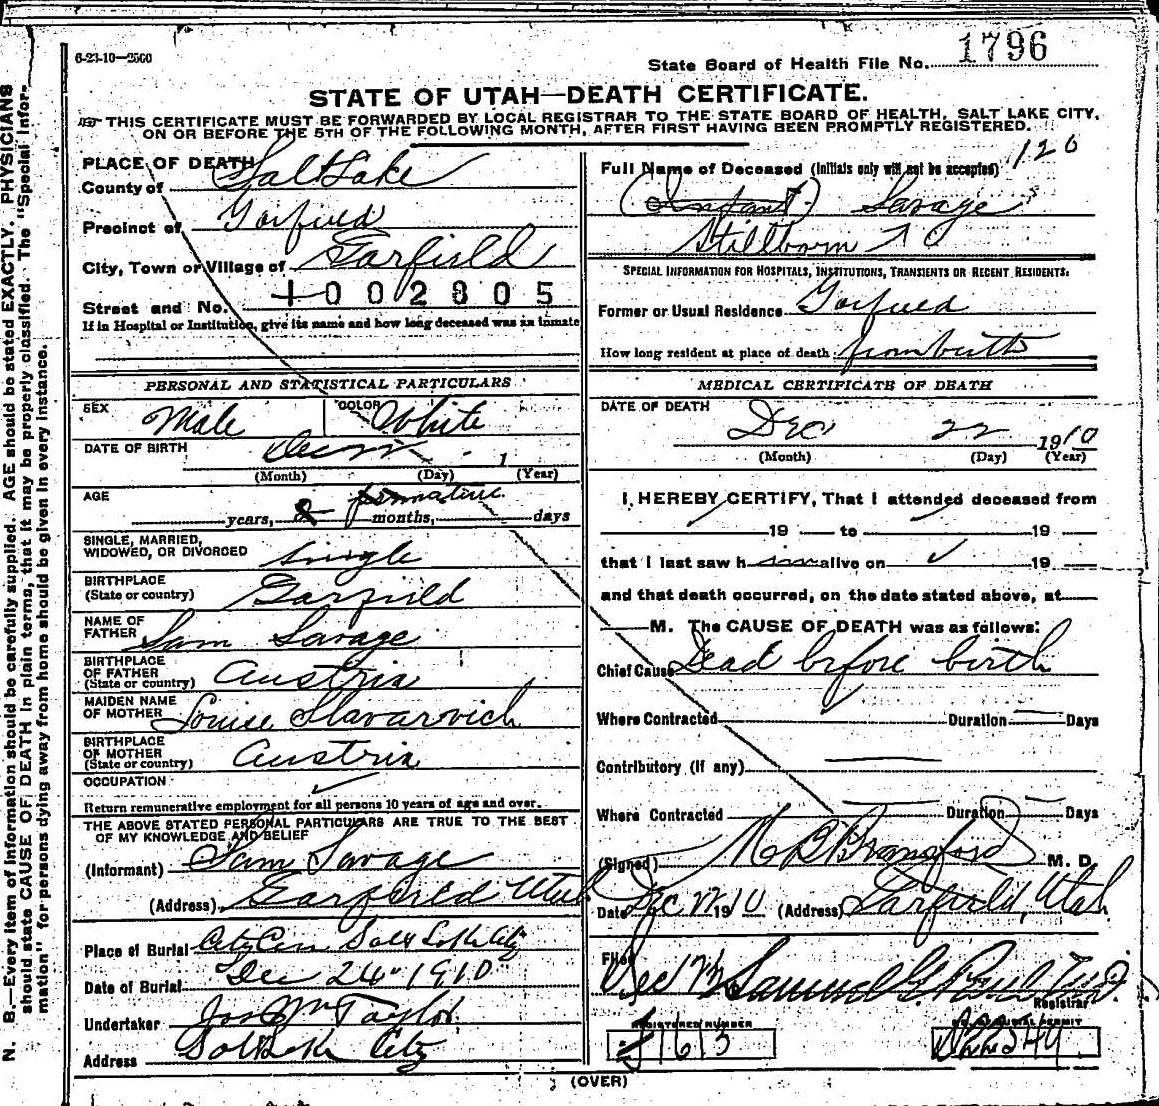 6-23-10—2500
State Board of Health File No. 1796
STATE OF UTAH—DEATH CERTIFICATE.
THIS CERTIFICATE MUST BE FORWARDED BY LOCAL REGISTRAR TO THE STATE BOARD OF HEALTH, SALT LAKE CITY,
ON OR BEFORE THE 5TH OF THE FOLLOWING MONTH, AFTER FIRST HAVING BEEN PROMPTLY REGISTERED.
N. B.—Every item of information should be carefully supplied. AGE should be stated EXACTLY. PHYSICIANS
should state CAUSE OF DEATH in plain terms, that it may be properly classified. The "Special Infor-
mation" for persons dying away from home should be given in every instance.
PLACE OF DEATH
County of Salt Lake
Precinct of Garfield
City, Town or Village of Garfield
Street and No. 1002805
If in Hospital or Institution, give its name and how long deceased was an inmate
Full Name of Deceased (Initials only will not be accepted) 120
(Infant) Savage
Stillborn
SPECIAL INFORMATION FOR HOSPITALS, INSTITUTIONS, TRANSIENTS OR RECENT RESIDENTS.
Former or Usual Residence Garfield
How long resident at place of death from birth
PERSONAL AND STATISTICAL PARTICULARS
SEX Male COLOR White
DATE OF BIRTH Dec 22 1
(Month) (Day) (Year)
AGE premature
years, 8 months, days
SINGLE, MARRIED,
WIDOWED, OR DIVORCED single
BIRTHPLACE
(State or country) Garfield
NAME OF
FATHER Sam Savage
BIRTHPLACE
OF FATHER
(State or country) Austria
MAIDEN NAME
OF MOTHER Louise Slavarovich
BIRTHPLACE
OF MOTHER
(State or country) Austria
OCCUPATION
Return remunerative employment for all persons 10 years of age and over.
THE ABOVE STATED PERSONAL PARTICULARS ARE TRUE TO THE BEST
OF MY KNOWLEDGE AND BELIEF
(Informant) Sam Savage
(Address) Garfield Utah
Place of Burial City Cem Salt Lake City
Date of Burial Dec 24 1910
Undertaker Jos Wm Taylor
Address Salt Lake City
MEDICAL CERTIFICATE OF DEATH
DATE OF DEATH
Dec 22 1910
(Month) (Day) (Year)
I, HEREBY CERTIFY, That I attended deceased from
19 to 19
that I last saw h alive on 19
and that death occurred, on the date stated above, at
M. The CAUSE OF DEATH was as follows:
Chief Cause Dead before birth
Where Contracted Duration Days
Contributory (if any)
Where Contracted Duration Days
(Signed) M. D.
Date Dec 22 1910 (Address) Garfield, Utah
Filed Dec Samuel G. Paul
Registrar
REGISTERED NUMBER
1613
(OVER)